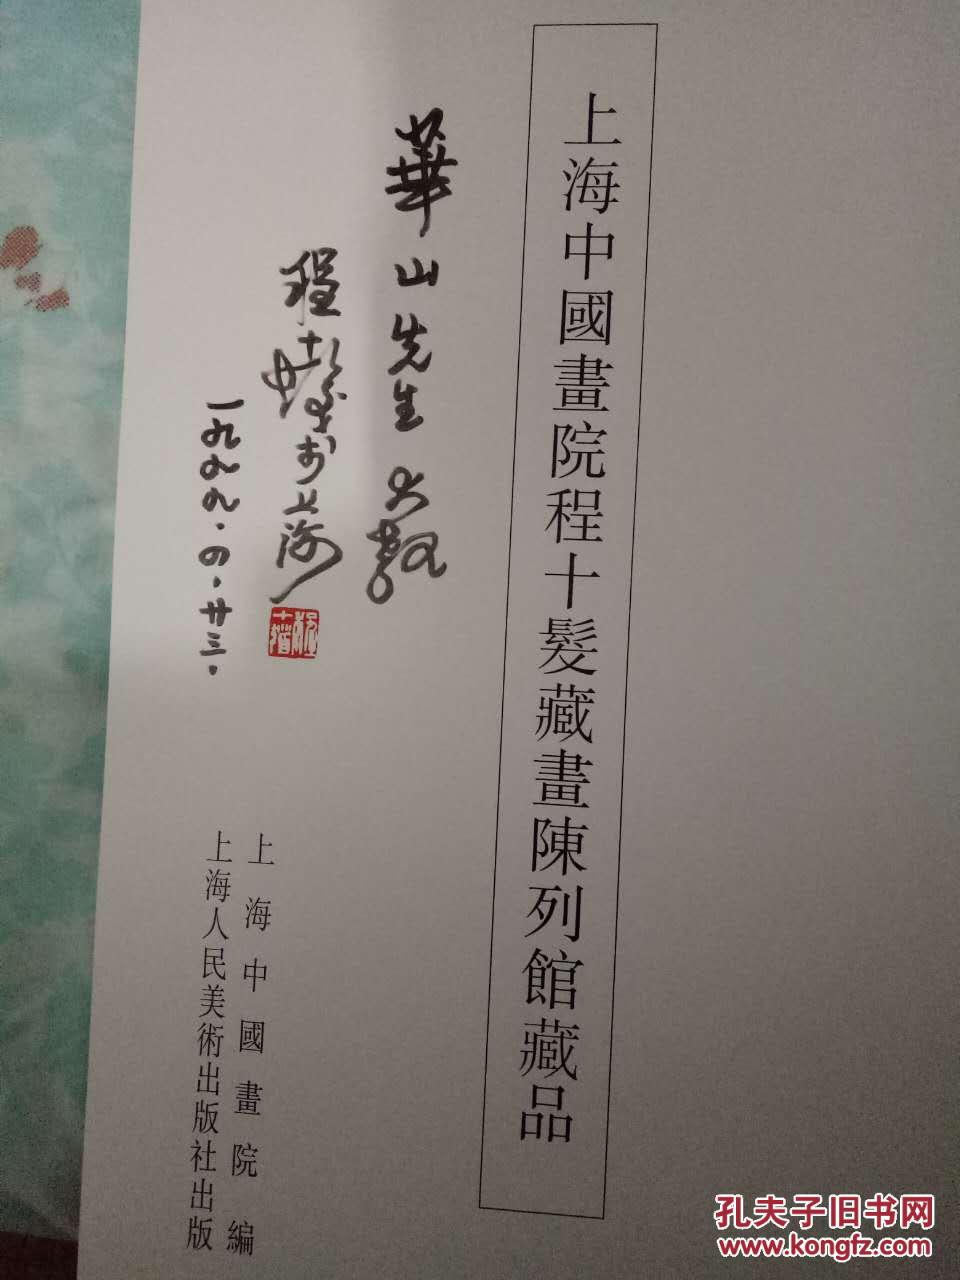 上海中國畫院程十髮藏畫陳列館藏品
華山先生大教
程十髮於上海
一九九九.四.廿三.
上海中國畫院編
上海人民美術出版社出版
孔夫子旧书网
www.kongfz.com